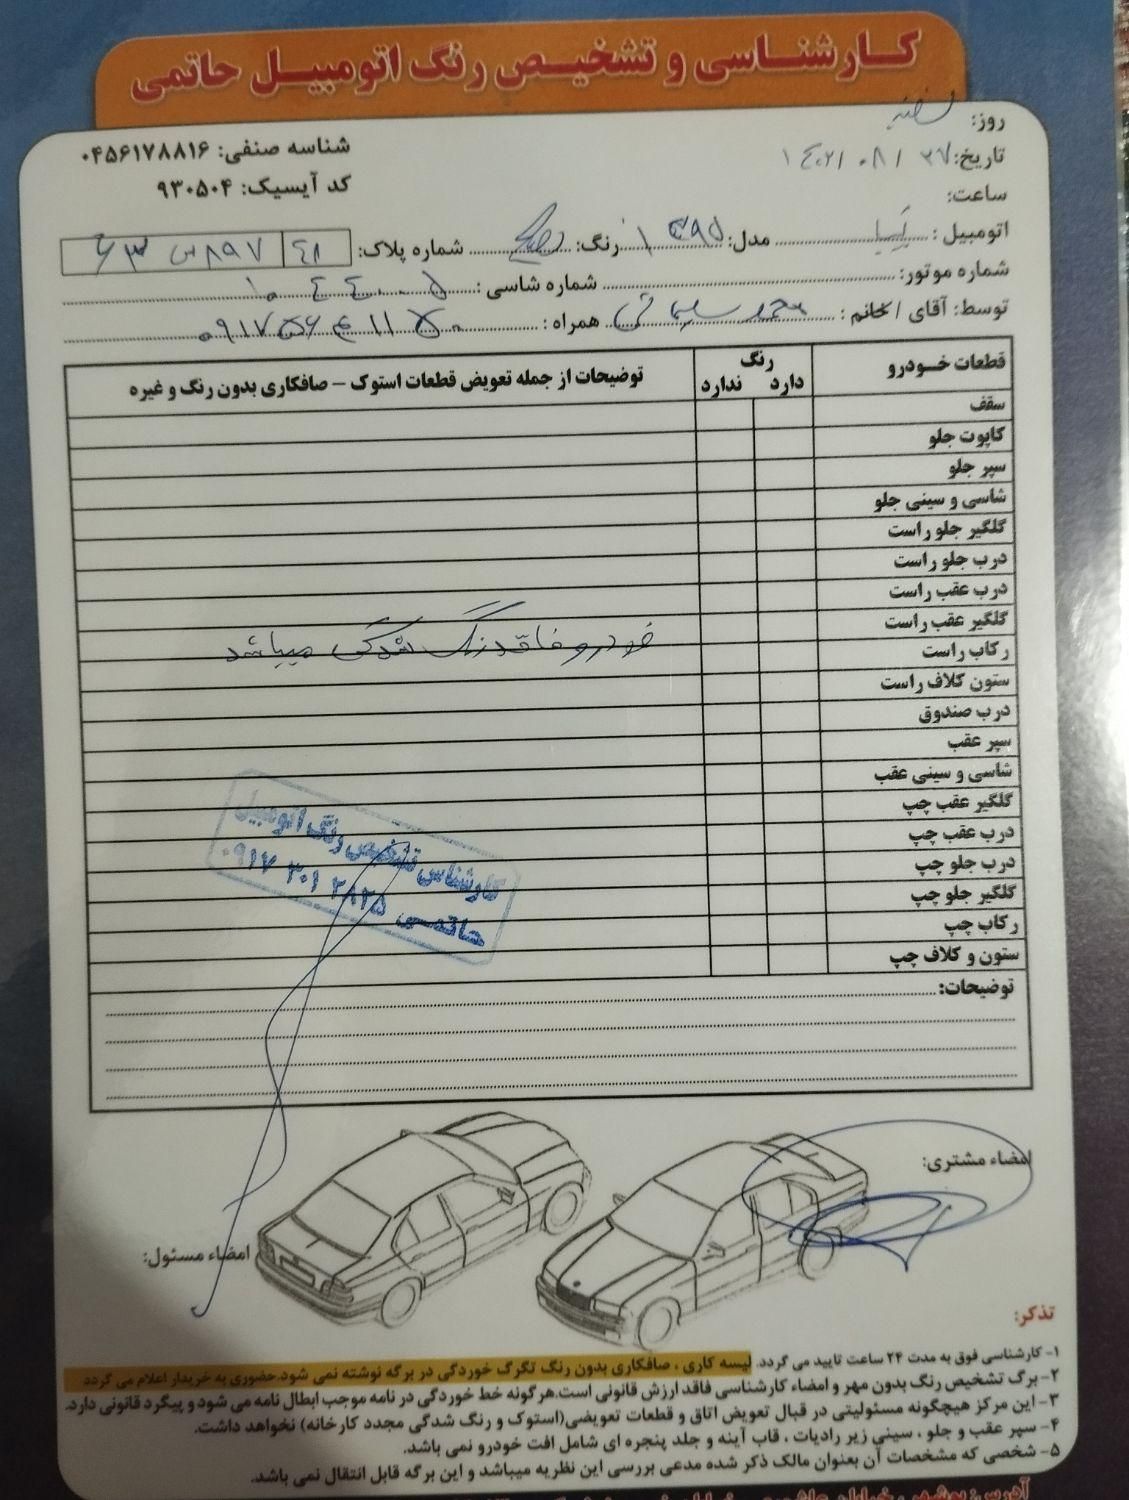 کارشناسی و تشخیص رنگ اتومبیل حاتمی
روز: شنبه
شناسه صنفی: ۰۴۵۶۱۷۸۸۱۶
تاریخ: ۱۴۰۲/۰۸/۲۷
کد آیسیک: ۹۳۰۵۰۴
ساعت:
اتومبیل: تیبا مدل: ۱۳۹۵ رنگ: شماره پلاک: ۴۸ ۸۹۷س۶۳
شماره موتور: شماره شاسی:
توسط: آقای / خانم: محمد همراه:
قطعات خودرو رنگ دارد ندارد توضیحات از جمله تعویض قطعات استوک – صافکاری بدون رنگ و غیره
سقف
کاپوت جلو
سپر جلو
شاسی و سینی جلو
گلگیر جلو راست
درب جلو راست
درب عقب راست
گلگیر عقب راست
رکاب راست خودرو فاقد رنگ شدگی میباشد
ستون کلاف راست
درب صندوق
سپر عقب
شاسی و سینی عقب
گلگیر عقب چپ
درب عقب چپ
درب جلو چپ
گلگیر جلو چپ
رکاب چپ
ستون و کلاف چپ
کارشناس تشخیص رنگ اتومبیل
حاتمی ۰۹۱۷ ۳۰۱ ۲۸۲۵
توضیحات:
امضاء مشتری:
امضاء مسئول:
تذکر:
۱- کارشناسی فوق به مدت ۲۴ ساعت تایید می گردد. لیسه کاری ، صافکاری بدون رنگ تگرگ خوردگی در برگه نوشته نمی شود.حضوری به خریدار اعلام می گردد
۲- برگ تشخیص رنگ بدون مهر و امضاء کارشناسی فاقد ارزش قانونی است.هرگونه خط خوردگی در نامه موجب ابطال نامه می شود و پیگرد قانونی دارد.
۳- این مرکز هیچگونه مسئولیتی در قبال تعویض اتاق و قطعات تعویضی(استوک و رنگ شدگی مجدد کارخانه) نخواهد داشت.
۴- سپر عقب و جلو ، سینی زیر رادیات ، قاب آینه و جلد پنجره ای شامل افت خودرو نمی باشد.
۵- شخصی که مشخصات آن بعنوان مالک ذکر شده مدعی بررسی این نظریه میباشد و این برگه قابل انتقال نمی باشد.